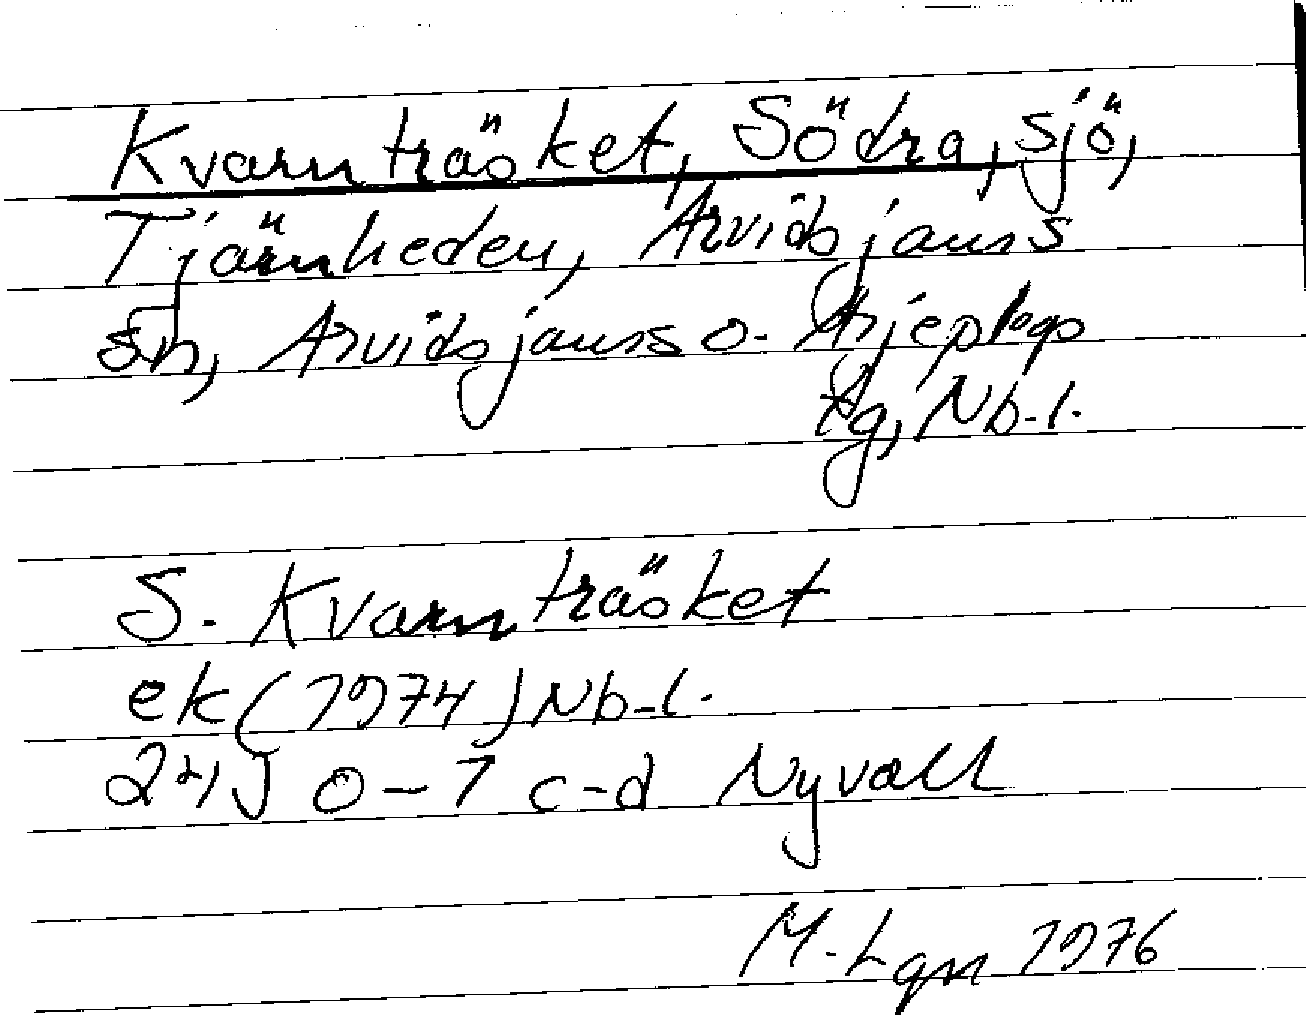 Kvarnträsket, Södra, sjö,
Tjärnheden, Arvidsjaurs
sn, Arvidsjaurs o. Arjeplogs
tg, Nb.l.
S. Kvarnträsket
ek (1974) Nb.l.
24J 0-1 c-d Nyvall
M. Lgn 1976